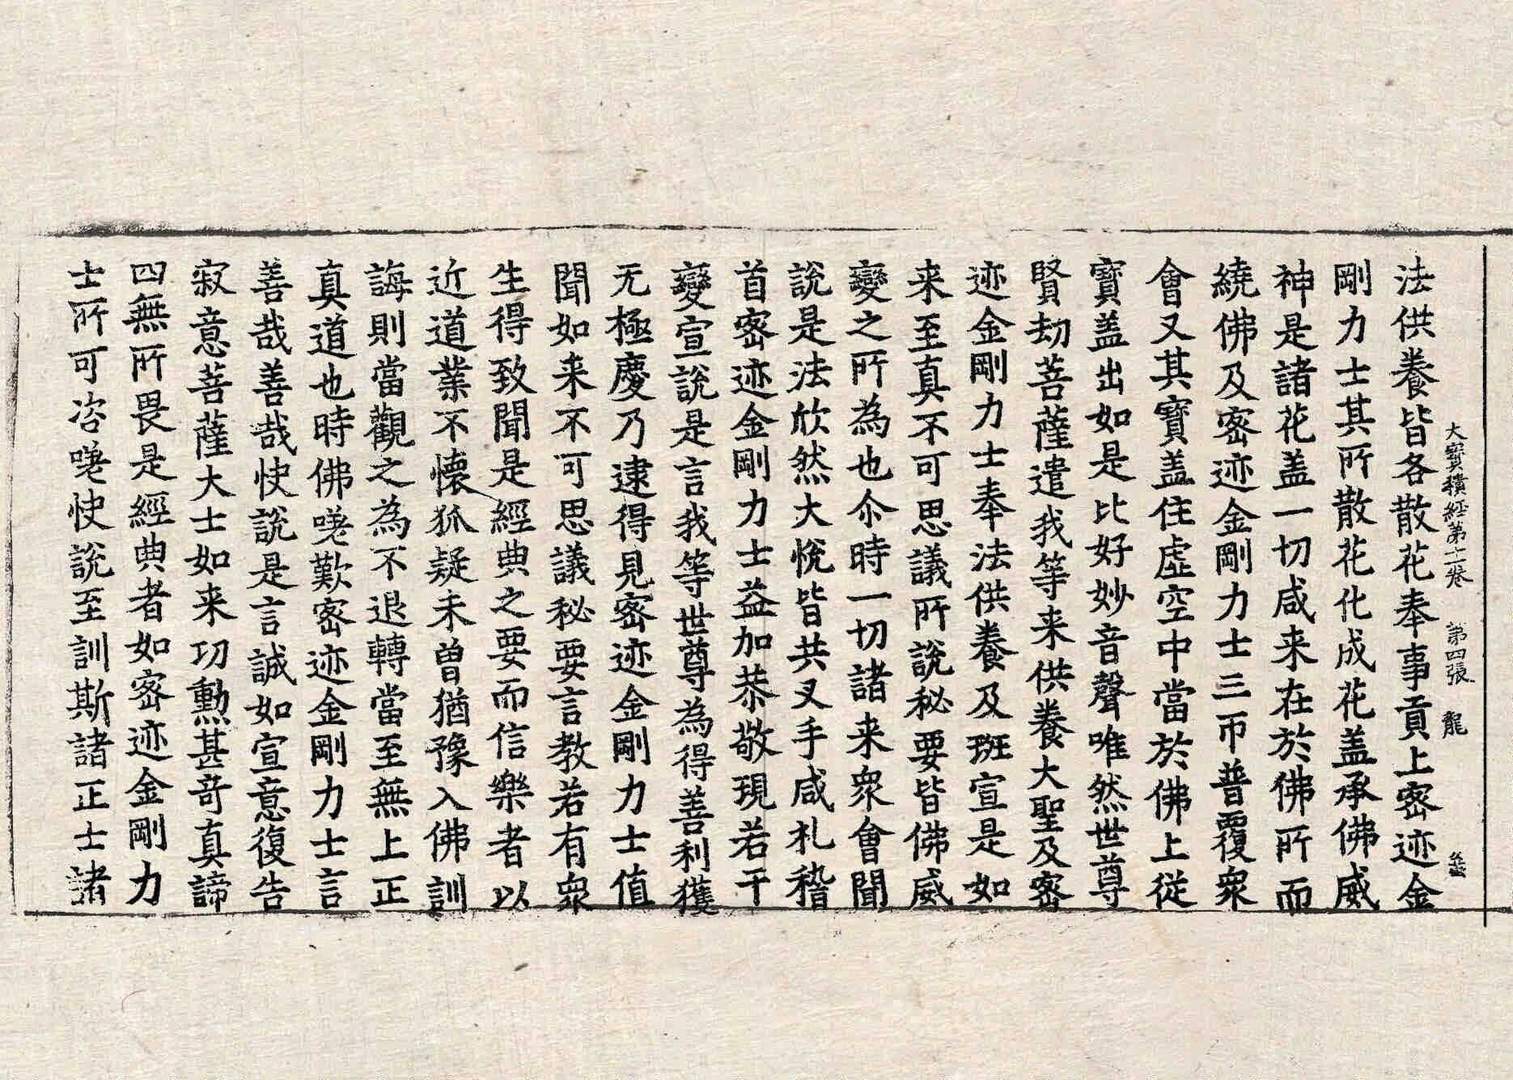 大寶積經第十二卷 第四張 龍
法供養皆各散花奉事貢上密迹金
剛力士其所散花化成花盖承佛威
神是諸花盖一切咸来在於佛所而
繞佛及密迹金剛力士三帀普覆衆
會又其寶盖住虛空中當於佛上從
寶盖出如是比好妙音聲唯然世尊
賢劫菩薩遣我等来供養大聖及密
迹金剛力士奉法供養及班宣是如
来至真不可思議所說秘要皆佛威
變之所為也尒時一切諸来衆會聞
說是法欣然大悅皆共叉手咸礼稽
首密迹金剛力士益加恭敬現若干
變宣說是言我等世尊為得善利獲
无極慶乃逮得見密迹金剛力士值
聞如来不可思議秘要言教若有衆
生得致聞是經典之要而信樂者以
近道業不懷狐疑未曾猶豫入佛訓
誨則當觀之為不退轉當至無上正
真道也時佛嗟歎密迹金剛力士言
善哉善哉快說是言誠如宣意復告
寂意菩薩大士如来功勳甚奇真諦
四無所畏是經典者如密迹金剛力
士所可咨嗟快說至訓斯諸正士諸